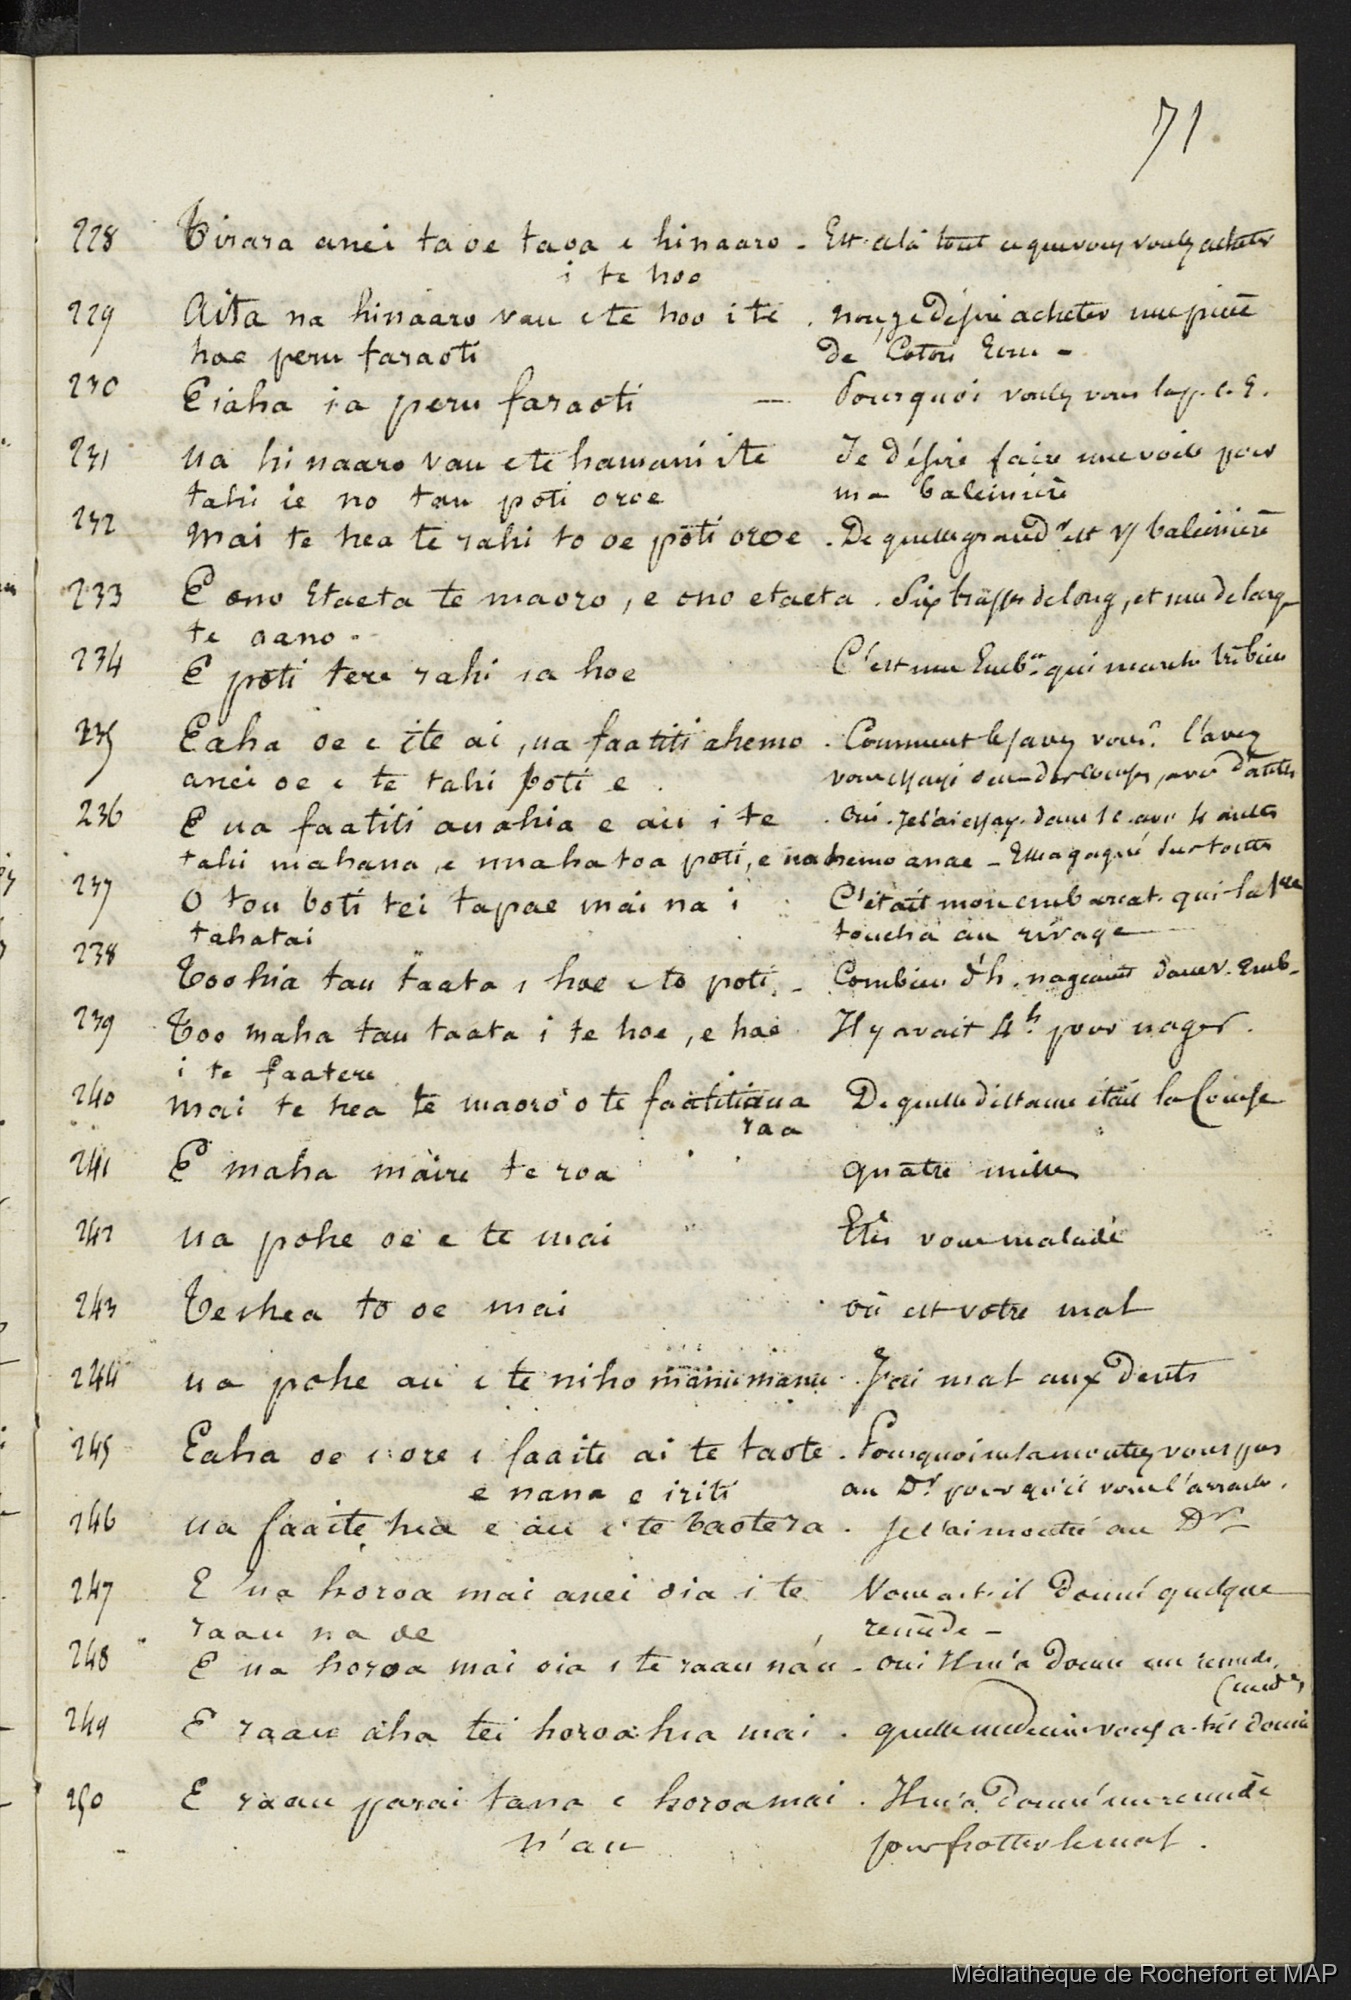 71.
228 Tirara anei ta oe taoa e hinaaro - Est cela tout ce que vous voulez acheter
i te hoo
229 Aita na hinaaro vau e te hoo i te . non, je désire acheter une pièce
hoe peru faraoti de Coton Ecru -
230 Eiaha ia peru faraoti — Pourquoi voulez vous la p. c. E.
231 ua hinaaro vau e te hamani i te Je désire faire une voile pour
tahi ie no tau poti oroe ma baleinière
232 mai te hea te rahi to oe poti oroe . De quelle grand^r est v/ baleinière
233 E ono Etaeta te maoro, e ono etaeta . Six brasses de long, et une de large
te aano.
234 E poti tere rahi ia hoe C'est une Emb^on qui marche très bien
235 Eaha oe e ite ai, ua faatiti ahemo . Comment le savez vous? l'avez
anei oe e te tahi poti e . vous essayé dans des courses, avec d'autres
236 E ua faatiti auahia e au i te . Oui. Je l'ai essay. dans 1 c. avec 4 autres
tahi mahana, e maha toa poti, e ua hemo anae - Elle a gagné sur toutes
237 O tou boti tei tapae mai na i C'était mon embarcat. qui la 1^re
tahatai toucha au rivage
238 Toohia tau taata i hoe e to poti - Combien d'h. nageaient dans v. Emb-
239 Too maha tau taata i te hoe, e hoe Il y avait 4 h pour nager.
i te faatere
240 mai te hea te maoro o te faatitiaua De quelle distance était la Course
raa
241 E maha maire te roa quatre milles
242 ua pohe oe e te mai Etes vous malade
243 Teihea to oe mai où est votre mal
244 ua pohe au e te niho manumanu . J'ai mal aux Dents
245 Eaha oe i ore e faaite ai te taote . Pourquoi ne la montrez vous pas
e nana e iriti au D^r pour qu'il vous l'arrache.
246 ua faaite hia e au e te taotera . je l'ai montré au D^r
247 E ua horoa mai anei oia i te Vous a.t.il Donné quelque
raau na oe remède -
248 E ua horoa mai oia i te raau na'u - oui Il m'a Donné un remède.
249 E raau aha tei horoahia mai . quelle medecine vous a-t-il donné
250 E raau parai tana e horoa mai . Il m'a Donné un remède
n'au pour frotter le mal .
Médiathèque de Rochefort et MAP